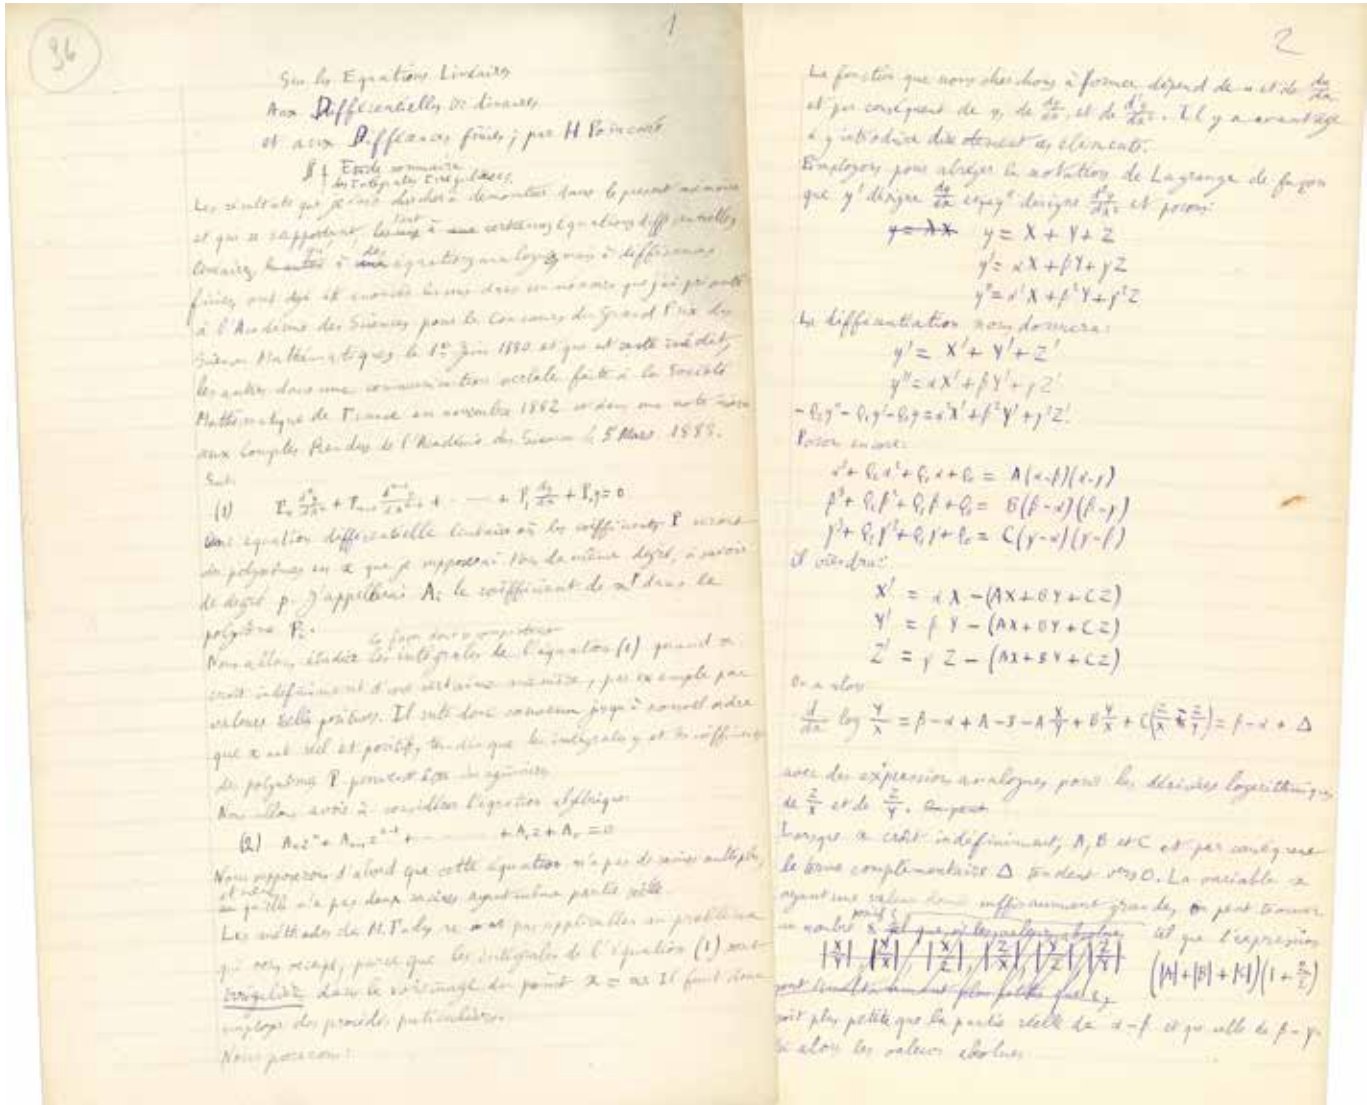 96
1
Sur les Equations Linéaires
Aux Différentielles Ordinaires
et aux Différences finies; par H Poincaré
§ 1 Etude sommaire
des intégrales irrégulières.
Les résultats que je vais chercher à démontrer dans le présent mémoire
et qui se rapportent, tant à certaines équations différentielles
linéaires, à des équations analogues, mais à différences
finies, ont déjà été énoncés les uns dans un mémoire que j'ai présenté
à l'Académie des Sciences pour le Concours du Grand Prix des
Sciences Mathématiques le 1er Juin 1880 et qui est resté inédit,
les autres dans une communication verbale faite à la Société
Mathématique de France en novembre 1882 et dans une note insérée
aux Comptes Rendus de l'Académie des Sciences le 5 Mars 1883.
Soit:
(1) Pₙ dⁿy/dxⁿ + Pₙ₋₁ dⁿ⁻¹y/dxⁿ⁻¹ + ........ + P₁ dy/dx + P₀y = 0
une equation différentielle linéaire où les coefficients P seront
des polynômes en x que je supposerai tous de même degré, à savoir
de degré p. J'appellerai Aᵢ le coefficient de xᵖ dans le
polynôme Pᵢ.
la façon dont se comportent
Nous allons étudier les intégrales de l'équation (1) quand x
croit indéfiniment d'une certaine manière, par exemple par
valeurs réelles positives. Il reste donc convenu jusqu'à nouvel ordre
que x est réel et positif, tandis que les intégrales y et les coefficients
des polynômes P peuvent être imaginaires.
Nous allons avoir à considérer l'équation algébrique
(2) Aₙzⁿ + Aₙ₋₁zⁿ⁻¹ + ........ + A₁z + A₀ = 0
Nous supposerons d'abord que cette équation n'a pas de racines multiples,
et même
qu'elle n'a pas deux racines ayant même partie réelle.
Les méthodes de M. Fuchs ne sont pas applicables au problème
qui nous occupe, parce que les intégrales de l'équation (1) sont
irrégulières dans le voisinage du point x = ∞. Il faut donc
employer des procédés particuliers.
Nous poserons:
2
La fonction que nous cherchons à former dépend de u et de du/dx
et par conséquent de y, de dy/dx, et de d²y/dx². Il y a avantage
à y introduire directement ces elements.
Employons pour abréger la notation de Lagrange de façon
que y' désigne dy/dx et que y" désigne d²y/dx² et posons:
y = λX y = X + Y + Z
y' = αX + βY + γZ
y" = α²X + β²Y + γ²Z
La différentiation nous donnera:
y' = X' + Y' + Z'
y" = αX' + βY' + γZ'
-Q₂y" - Q₁y' - Q₀y = α²X' + β²Y' + γ²Z'.
Posons encore:
α³ + Q₂α² + Q₁α + Q₀ = A(α-β)(α-γ)
β³ + Q₂β² + Q₁β + Q₀ = B(β-α)(β-γ)
γ³ + Q₂γ² + Q₁γ + Q₀ = C(γ-α)(γ-β)
il viendra:
X' = αX - (AX + BY + CZ)
Y' = βY - (AX + BY + CZ)
Z' = γZ - (AX + BY + CZ)
On a alors
d/dx log Y/X = β - α + A - B - A X/Y + B Y/X + C(Z/X - Z/Y) = β - α + Δ
avec des expression analogues pour les dérivées logarithmiques
de Z/X et de Z/Y. On peut
Lorsque x croît indéfiniment, A, B et C et par conséquent
le terme complémentaire Δ tendent vers 0. La variable x
ayant une valeur donnée suffisamment grande, on peut trouver
positif
un nombre tel que, si les valeurs absolues tel que l'expression
|X/Y| |Y/X|, |X/Z|, |Z/X|, |Y/Z|, |Z/Y| (|A|+|B|+|C|)(1 + 2/ε)
sont plus petites que
soit plus petite que la partie réelle de α-β et que celle de β-γ.
Si alors les valeurs absolues